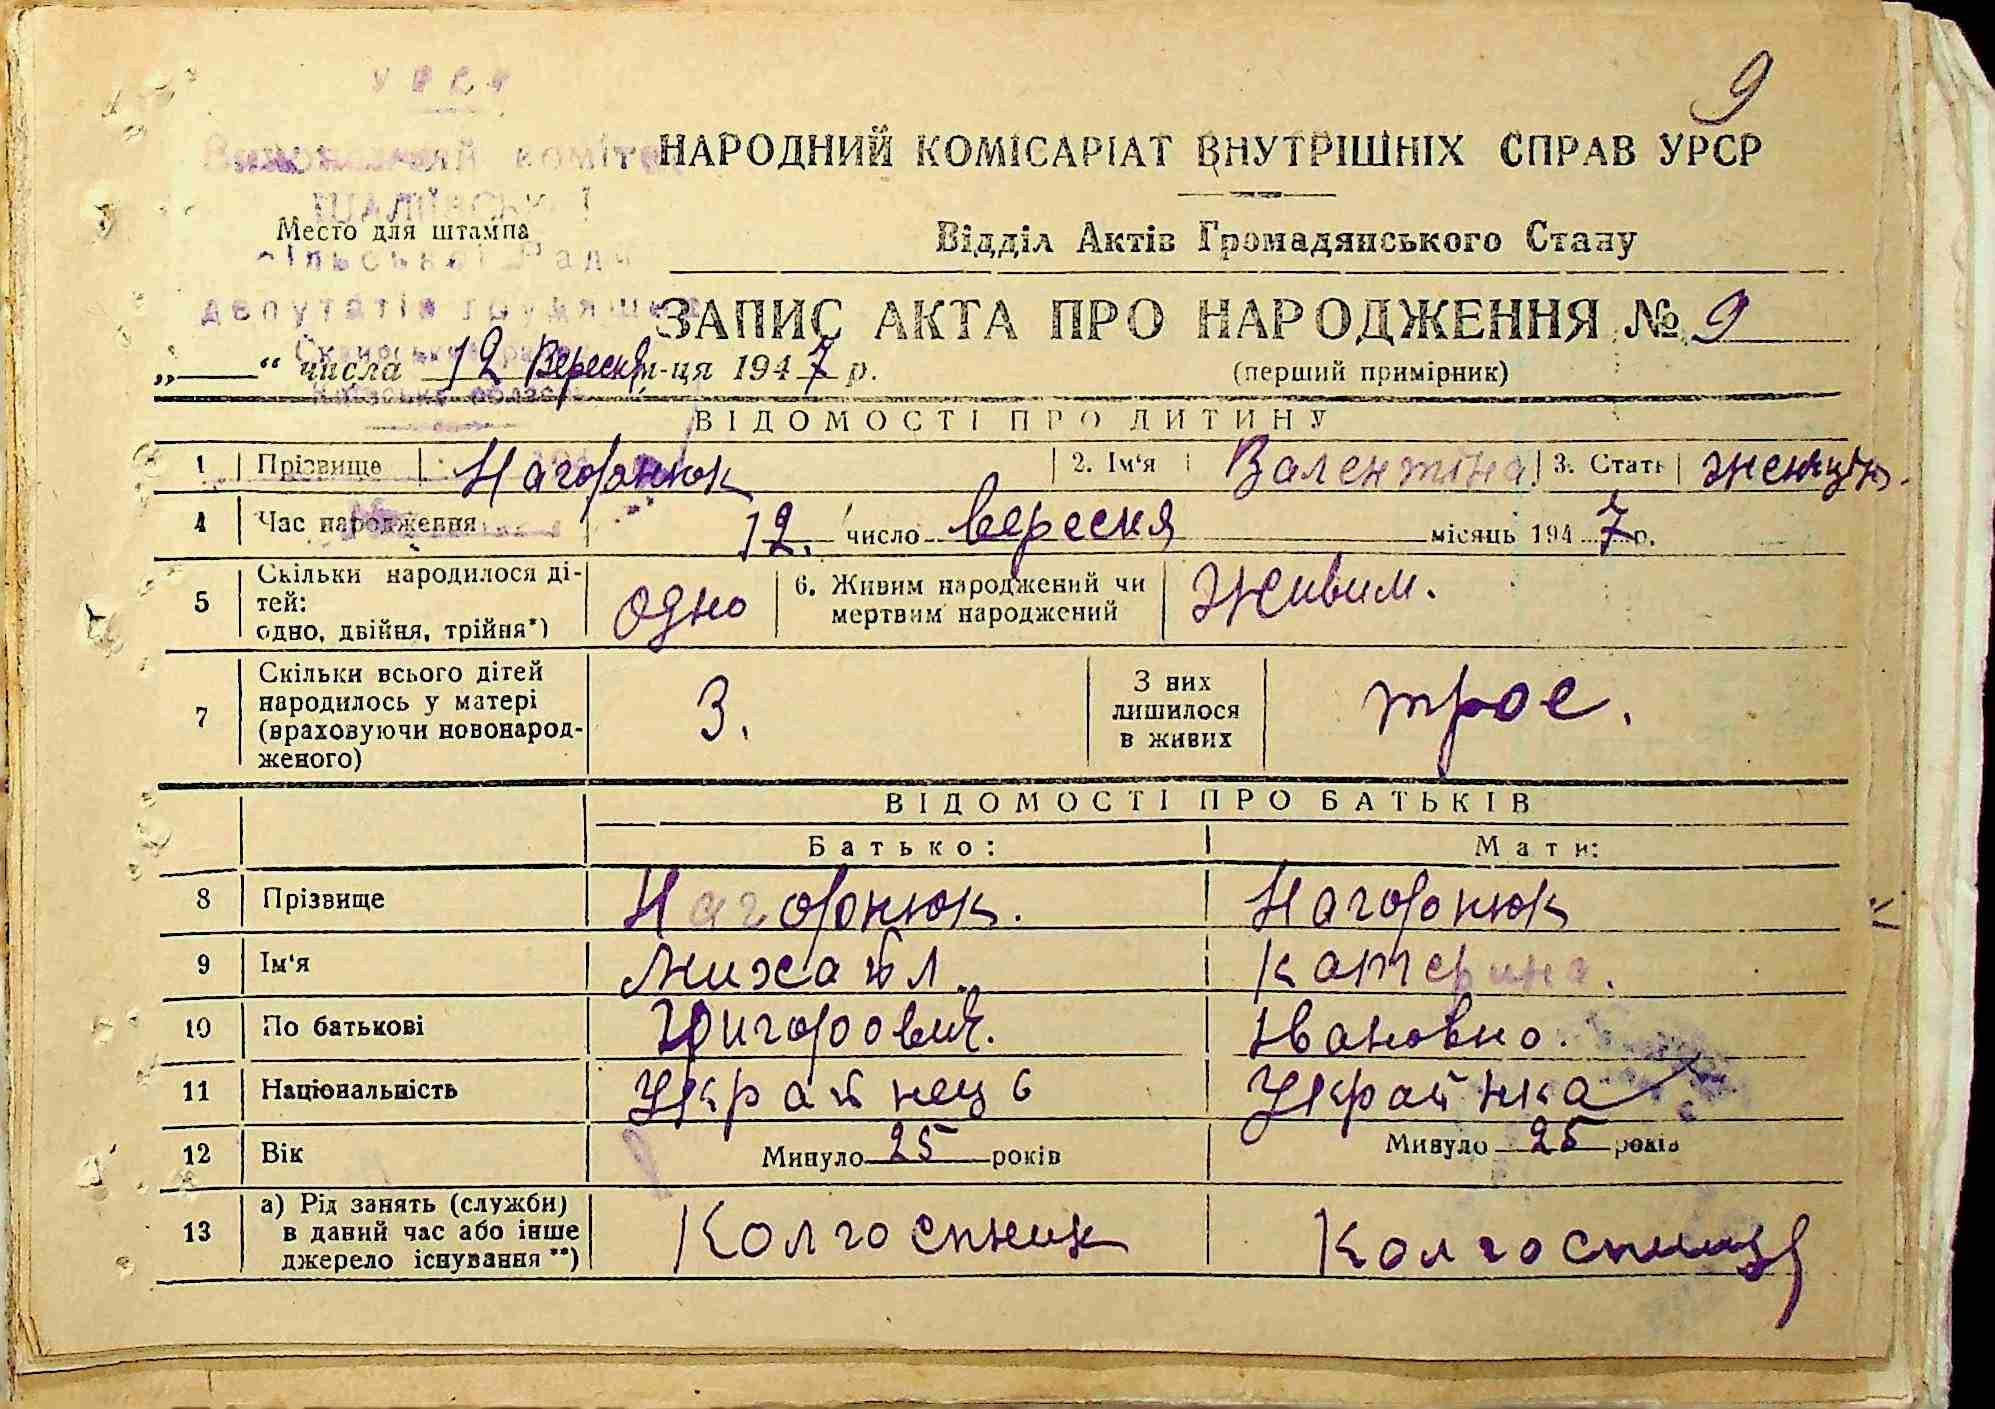 9
УРСР
Виконавчий комітет
НАРОДНИЙ КОМІСАРІАТ ВНУТРІШНІХ СПРАВ УРСР
ШАЛІЇВСЬКОЇ
Место для штампа
Відділ Актів Громадянського Стану
сільської Ради
депутатів трудящих
ЗАПИС АКТА ПРО НАРОДЖЕННЯ № 9
Сквирського району
„ “ числа 12 Вересня м-ця 1947 р.
(перший примірник)
Київської області
ВІДОМОСТІ ПРО ДИТИНУ
1 Прізвище Нагорнюк 2. Ім‘я Валентіна 3. Стать
4 Час народження 12. число вересня місяць 1947 р.
5 Скільки народилося ді-
тей:
одно, двійня, трійня*) одно
6. Живим народжений чи
мертвим народжений Живим.
7 Скільки всього дітей
народилось у матері
(враховуючи новонарод-
женого) 3.
З них
лишилося
в живих трое.
ВІДОМОСТІ ПРО БАТЬКІВ
Батько: Мати:
8 Прізвище Нагорнюк. Нагорнюк
9 Ім‘я Михайл. Катерина.
10 По батькові Григорович. Івановно.
11 Національність Українець Українка
12 Вік Минуло 25 років Минуло 25 років
13 а) Рід занять (служби)
в даний час або інше
джерело існування**) Колгоспник Колгоспниця